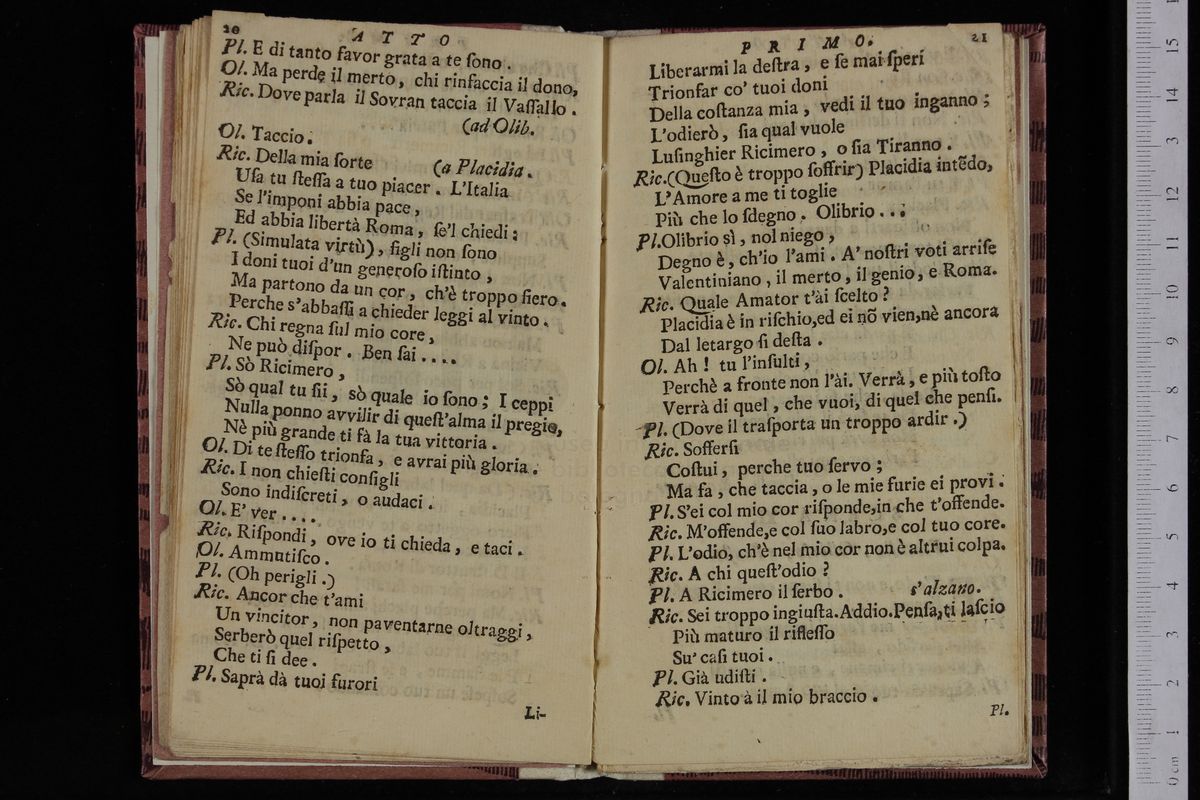 20
ATTO
Pl. E di tanto favor grata a te ſono.
Ol. Ma perde il merto, chi rinfaccia il dono,
Ric. Dove parla il Sovran taccia il Vaſſallo.
(ad Olib.
Ol. Taccio.
Ric. Della mia ſorte (a Placidia.
Uſa tu ſteſſa a tuo piacer. L'Italia
Se l'imponi abbia pace,
Ed abbia libertà Roma, ſe'l chiedi:
Pl. (Simulata virtù), figli non ſono
I doni tuoi d'un generoſo iſtinto,
Ma partono da un cor, ch'è troppo fiero.
Perche s'abbaſſi a chieder leggi al vinto.
Ric. Chi regna ſul mio core,
Ne può diſpor. Ben ſai....
Pl. Sò Ricimero,
Sò qual tu ſii, sò quale io ſono; I ceppi
Nulla ponno avvilir di queſt'alma il pregio,
Nè più grande ti fà la tua vittoria.
Ol. Di te ſteſſo trionfa, e avrai più gloria.
Ric. I non chieſti conſigli
Sono indiſcreti, o audaci.
Ol. E' ver....
Ric. Riſpondi, ove io ti chieda, e taci.
Ol. Ammutiſco.
Pl. (Oh perigli.)
Ric. Ancor che t'ami
Un vincitor, non paventarne oltraggi,
Serberò quel riſpetto,
Che ti ſi dee.
Pl. Saprà dà tuoi furori
Li-
PRIMO.
21
Liberarmi la deſtra, e ſe mai ſperi
Trionfar co' tuoi doni
Della coſtanza mia, vedi il tuo inganno;
L'odierò, ſia qual vuole
Luſinghier Ricimero, o ſia Tiranno.
Ric.(Queſto è troppo ſoffrir) Placidia intẽdo,
L'Amore a me ti toglie
Più che lo ſdegno. Olibrio...
Pl.Olibrio sì, nol niego,
Degno è, ch'io l'ami. A' noſtri voti arriſe
Valentiniano, il merto, il genio, e Roma.
Ric. Quale Amator t'ài ſcelto?
Placidia è in riſchio,ed ei nõ vien,nè ancora
Dal letargo ſi deſta.
Ol. Ah! tu l'inſulti,
Perchè a fronte non l'ài. Verrà, e più toſto
Verrà di quel, che vuoi, di quel che penſi.
Pl. (Dove il traſporta un troppo ardir.)
Ric. Sofferſi
Coſtui, perche tuo ſervo;
Ma fa, che taccia, o le mie furie ei provi.
Pl. S'ei col mio cor riſponde,in che t'offende.
Ric. M'offende,e col ſuo labro,e col tuo core.
Pl. L'odio, ch'è nel mio cor non è altrui colpa.
Ric. A chi queſt'odio?
Pl. A Ricimero il ſerbo. s'alzano.
Ric. Sei troppo ingiuſta.Addio.Penſa,ti laſcio
Più maturo il rifleſſo
Su' caſi tuoi.
Pl. Già udiſti.
Ric. Vinto à il mio braccio.
Pl.